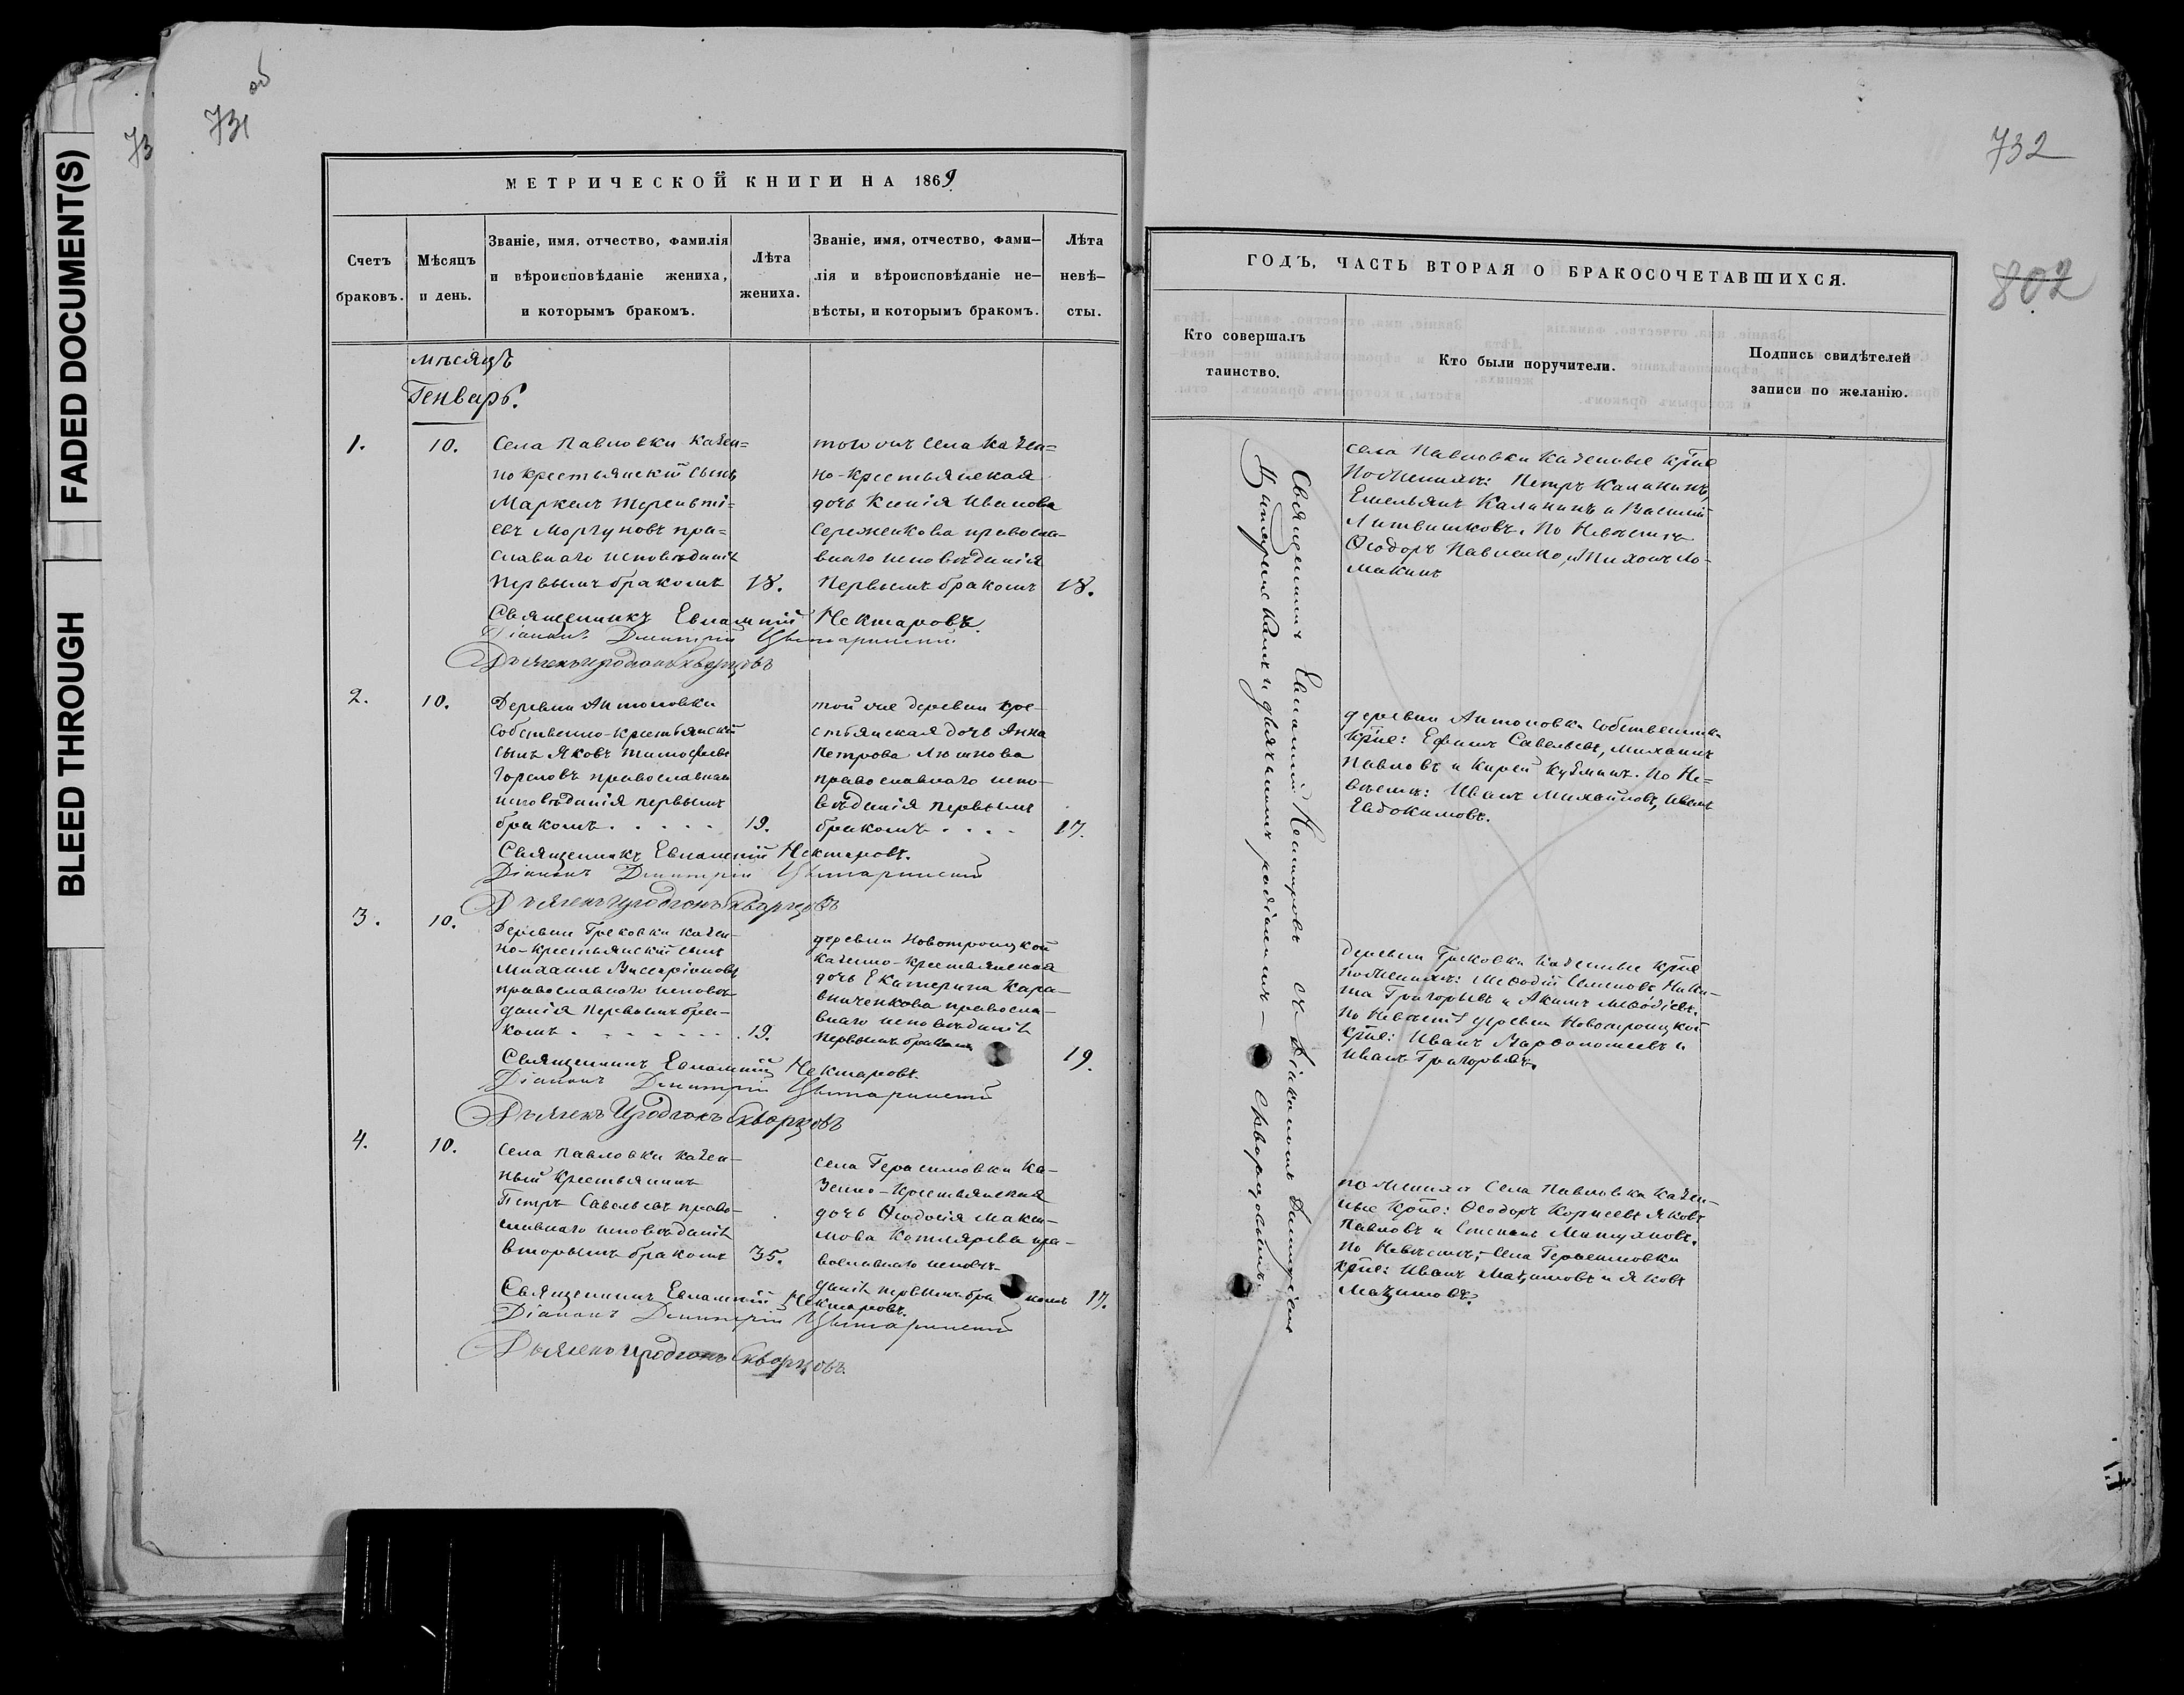 FADED DOCUMENT(S)
BLEED THROUGH
73
731 об
МЕТРИЧЕСКОЙ КНИГИ НА 1869
Счетъ браковъ.
Мѣсяцъ и день.
Званіе, имя, отчество, фамилія
и вѣроисповѣданіе жениха,
и которымъ бракомъ.
Лѣта
жениха.
Званіе, имя, отчество, фами–
лія и вѣроисповѣданіе не–
вѣсты, и которымъ бракомъ.
Лѣта
невѣ–
сты.
мѣсяцъ
Генварь.
1.
10.
Села Павловки казен=
но крестьянскій сынъ
Маркелъ Терентi=
евъ Моргуновъ пра=
славнаго исповѣданія
первымъ бракомъ
18.
того же села казен=
но-крестьянская
дочь Ксенія Иванова
Сереженкова правосла-
внаго исповѣданія
первымъ бракомъ
18.
Священникъ Евлампій Нектаровъ.
Діаконъ Димитрій
Дьячекъ Иродіонъ Скворцовъ
2.
10.
Деревни Антоновки
собственно-крестьянскій
сынъ Яковъ Тимофеевъ
Гореловъ православнаго
исповѣданія первымъ
бракомъ. . . . .
19.
той же деревни кре-
стьянская дочь Анна
Петрова
православнаго испо-
вѣданія первымъ
бракомъ. . . .
17.
Священникъ Евлампій Нектаровъ.
Діаконъ Димитрій
Дьячекъ Иродіонъ Скворцовъ
3.
10.
Деревни Грековки казен-
но-крестьянскій сынъ
Михаилъ Виссаріоновъ
православнаго исповѣ-
данія первымъ бра-
комъ . . . . . . .
19.
деревни Новотроицкой
казенно-крестьянская
дочь Екатерина Кара-
вниченкова правосла-
внаго исповѣданія
первымъ бракомъ
19.
Священникъ Евлампій Нектаровъ.
Діаконъ Димитрій
Дьячекъ Иродіонъ Скворцовъ
4.
10.
Села Павловки казен-
ный крестьянинъ
Петръ Савельевъ право-
славнаго исповѣданія
вторымъ бракомъ
35.
села Герасимовки ка-
зенно-крестьянская
дочь Ѳеодосія Макси-
мова Котлярева пра-
вославнаго исповѣ-
данія первымъ бракомъ
17.
Священникъ Евлампій Нектаровъ.
Діаконъ Димитрій
Дьячекъ Иродіонъ Скворцовъ.
732
802
ГОДЪ, ЧАСТЬ ВТОРАЯ О БРАКОСОЧЕТАВШИХСЯ.
Кто совершалъ
таинство.
Кто были поручители.
Подпись свидѣтелей
записи по желанію.
Священникъ Евлампій Нектаровъ съ діакономъ Димитріемъ
и дьячкомъ Иродіономъ Скворцовымъ.
села Павловки казенные крѣпе
по женихѣ: Петръ Калининъ,
Емельянъ Калининъ и Василій
Литвишковъ. По невѣстѣ
Ѳеодоръ Павленко, Тихонъ Ло-
макинъ
деревни Антоновки собственники
крѣпе: Ефимъ Савельевъ, Михаилъ
Павловъ и Кирей Кузминъ. По не=
вѣстѣ: Иванъ Михайловъ, Иванъ
Евдокимовъ.
деревни Грековки казенные крѣпе
по женихѣ: Меѳодій Семеновъ Ники-
та Григорьевъ и Акимъ Меѳодіевъ.
по невѣстѣ деревни Новотроицкой
крѣпе: Иванъ Варѳоломеевъ и
Иванъ Григорьевъ.
по женихѣ села Павловки казен-
ные крѣпе: Ѳеодоръ Корнеевъ Яковъ
Павловъ и Степанъ
по невѣстѣ; села Герасимовки
крѣпе: Иванъ Мазимовъ и Яковъ
Мазимовъ.